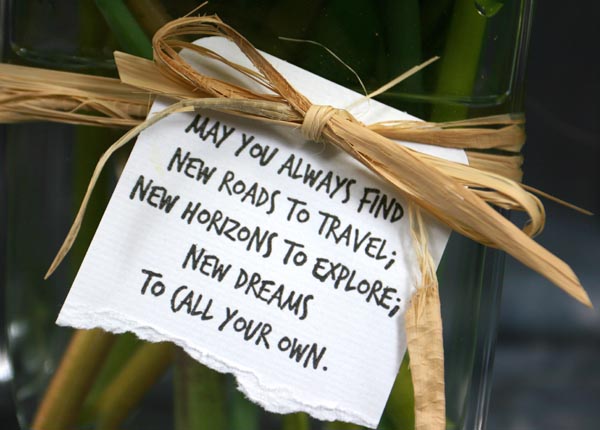 MAY YOU ALWAYS FIND
NEW ROADS TO TRAVEL;
NEW HORIZONS TO EXPLORE;
NEW DREAMS
TO CALL YOUR OWN.